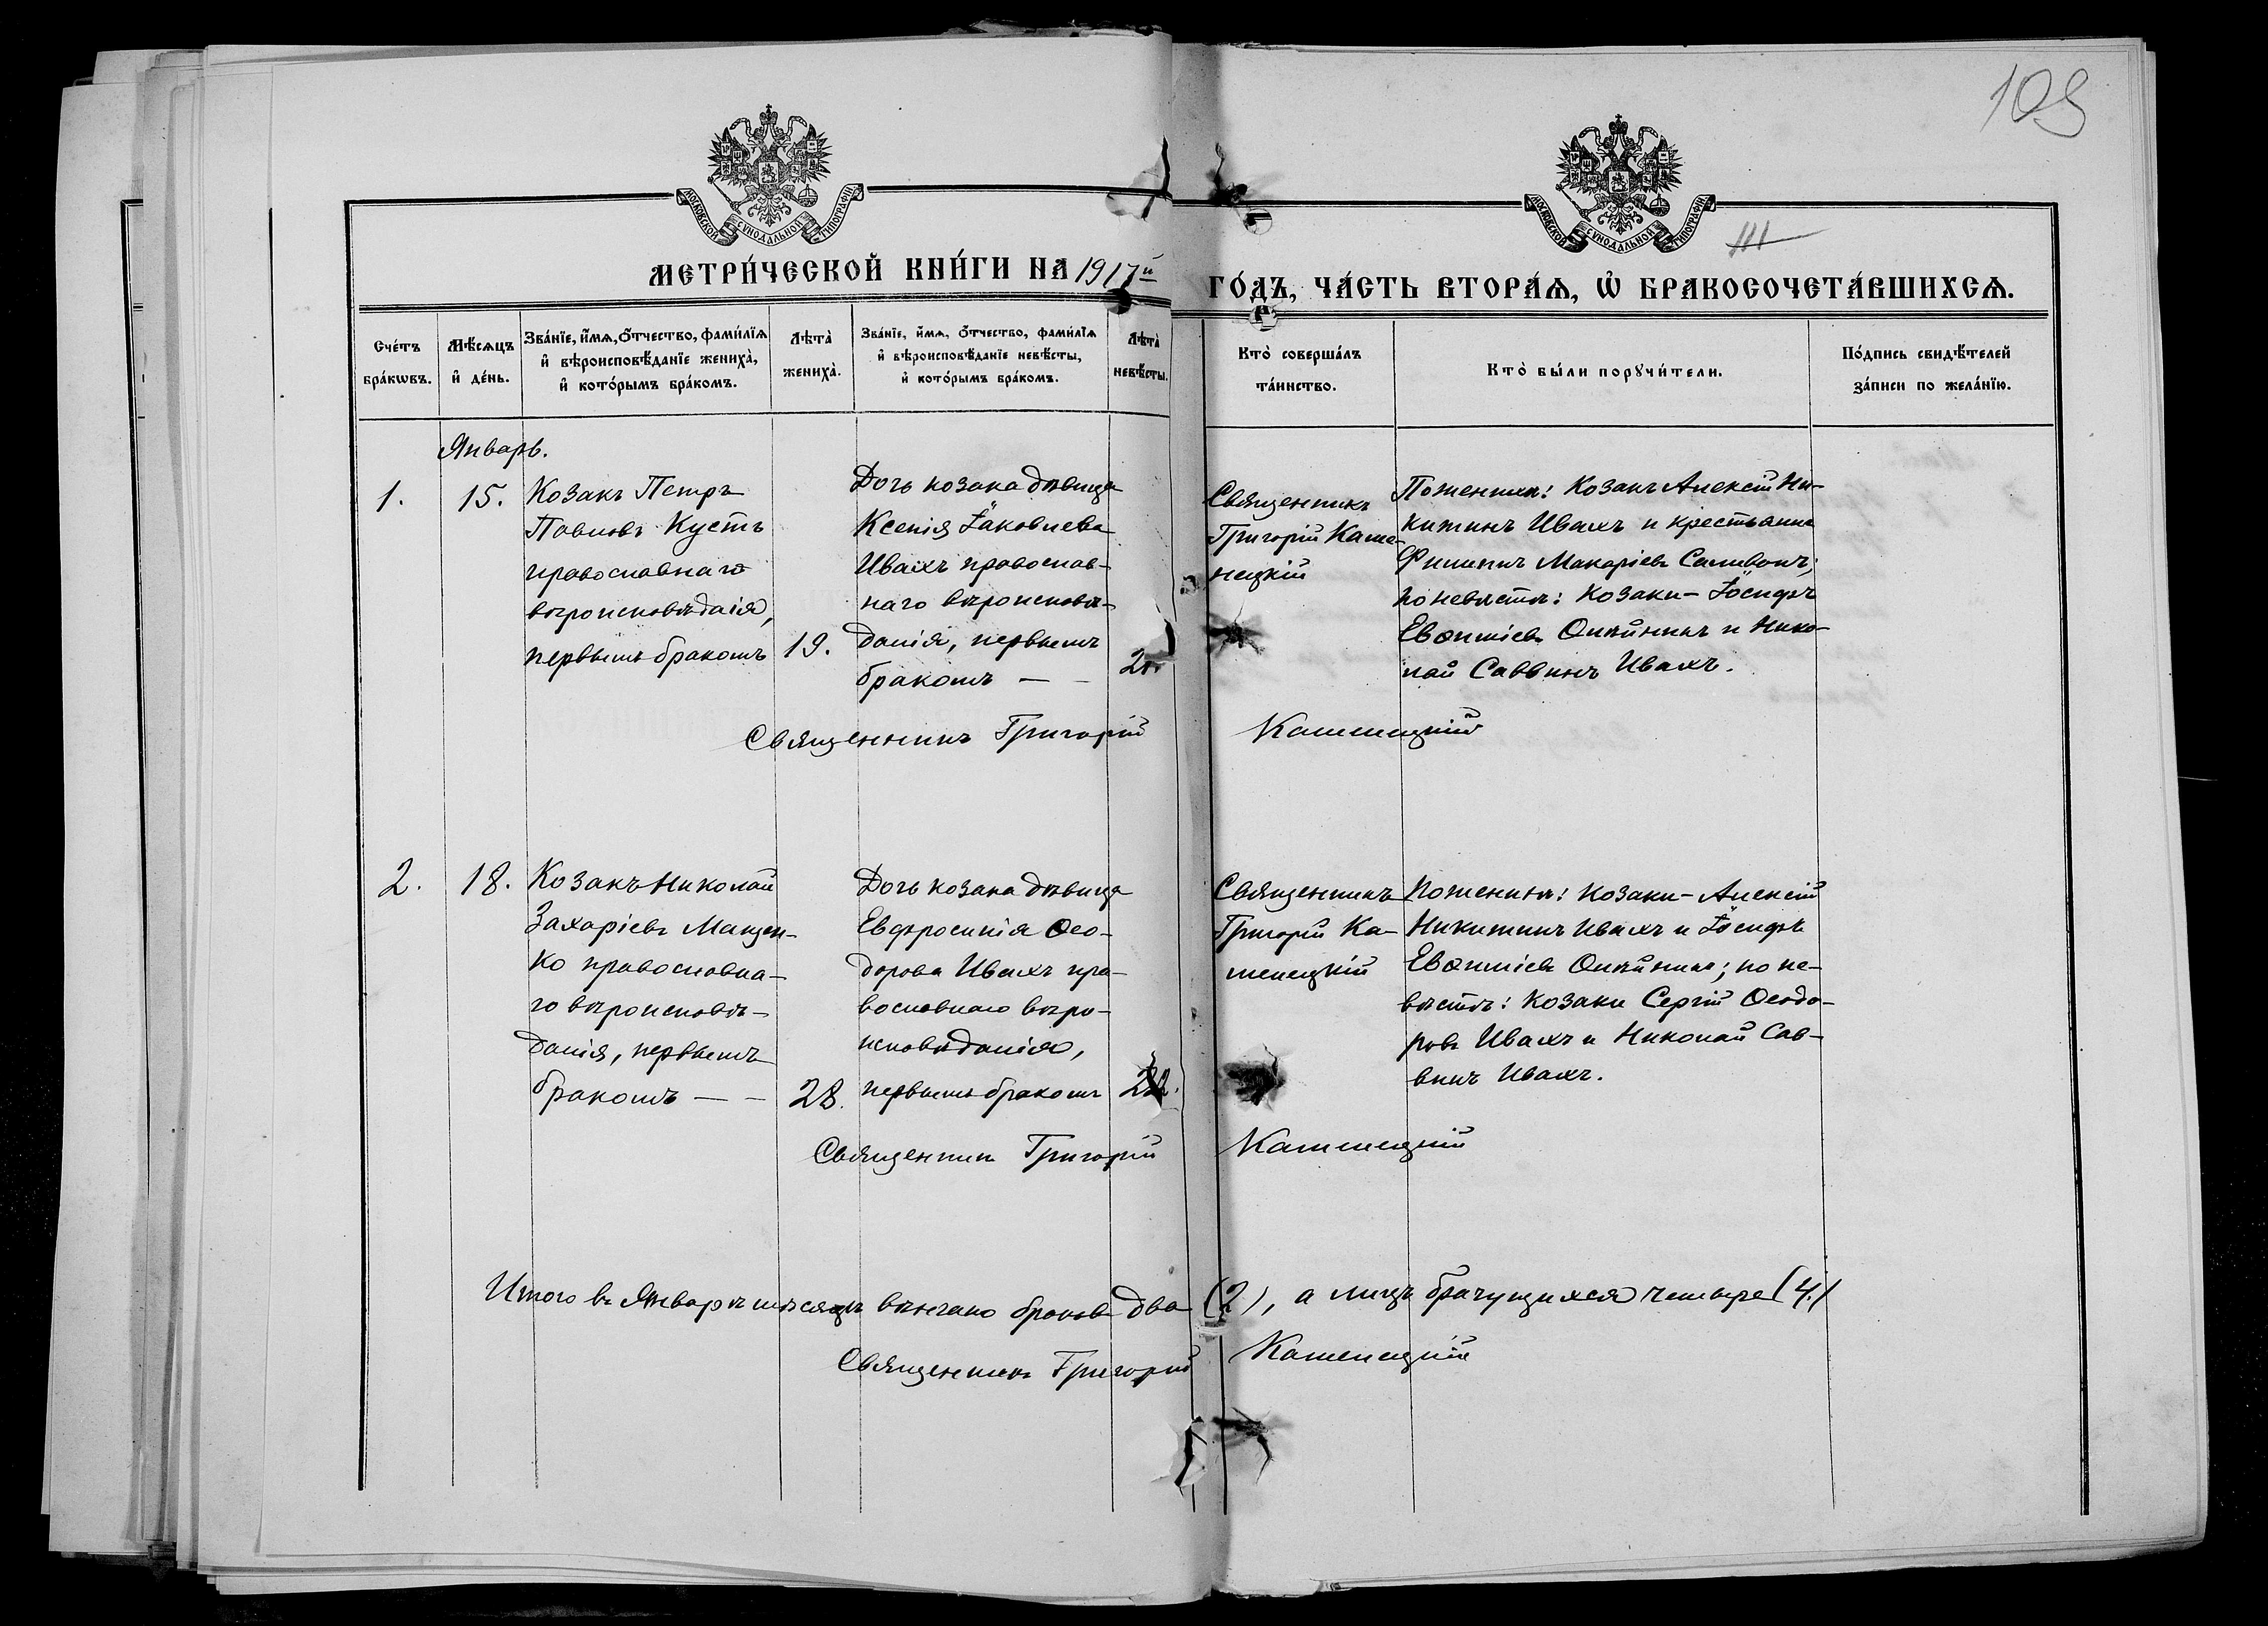 109
МОСКОВСКОЙ СУНОДАЛЬНОЙ ТИПОГРАФІИ
МОСКОВСКОЙ СУНОДАЛЬНОЙ ТИПОГРАФІИ
111
МЕТРИ́ЧЕСКОЙ КНИ́ГИ НА 1917й
ГО́ДЪ, ЧА́СТЬ ВТОРА́Ѧ, Ѡ҆ БРАКОСОЧЕТА́ВШИХСѦ.
Сче́тъ бра́кѡвъ.
Мѣ́сѧцъ и҆ де́нь.
Зва́нїе, и҆́мѧ, ѻ҆́тчество, фами́лїѧ и҆ вѣроисповѣ́данїе жениха̀, и҆ кото́рымъ бра́комъ.
Лѣта̀ жениха̀.
Зва́нїе, и҆́мѧ, ѻ҆́тчество, фами́лїѧ и҆ вѣроисповѣ́данїе невѣ́сты, и҆ кото́рымъ бра́комъ.
Лѣта̀ невѣ́сты.
Кто̀ соверша́лъ та́инство.
Кто̀ бы́ли порꙋчи́тели.
По́дпись свидѣ́телей за́писи по жела́нїю.
Январь.
1.
15.
Козакъ Петръ
Павловъ Кустъ
православнаго
вѣроисповѣданія,
первымъ бракомъ
19.
Дочь козака дѣвица
Ксенія Іаковлева
Ивахъ православ-
наго вѣроисповѣ-
данія, первымъ
бракомъ — —
Священникъ
Григорій Каме-
нецкій
По женихѣ: Козакъ Алексій Ни-
китинъ Ивахъ и крестьянинъ
Филиппъ Макаріевъ Саливонъ;
по невѣстѣ: Козаки - Іосифъ
Евѳиміевъ Олѣйникъ и Нико-
лай Саввинъ Ивахъ.
Священникъ Григорій Каменецкій
2.
18.
Козакъ Николай
Захаріевъ Мацен-
ко православна-
го вѣроисповѣ-
данія, первымъ
бракомъ — —
28.
Дочь козака дѣвица
Евфросинія Ѳео-
дорова Ивахъ пра-
вославнаго вѣро-
исповѣданія,
первымъ бракомъ
22.
Священникъ
Григорій Ка-
менецкій
По женихѣ: козаки - Алексій
Никитинъ Ивахъ и Іосифъ
Евѳиміевъ Олѣйникъ; по не-
вѣстѣ: козаки Сергій Ѳеодо-
ровъ Ивахъ и Николай Сав-
винъ Ивахъ.
Священникъ Григорій Каменецкій
Итого въ Январѣ мѣсяцѣ вѣнчано браковъ два (2), а лицъ брачущихся четыре (4.)
Священникъ Григорій Каменецкій